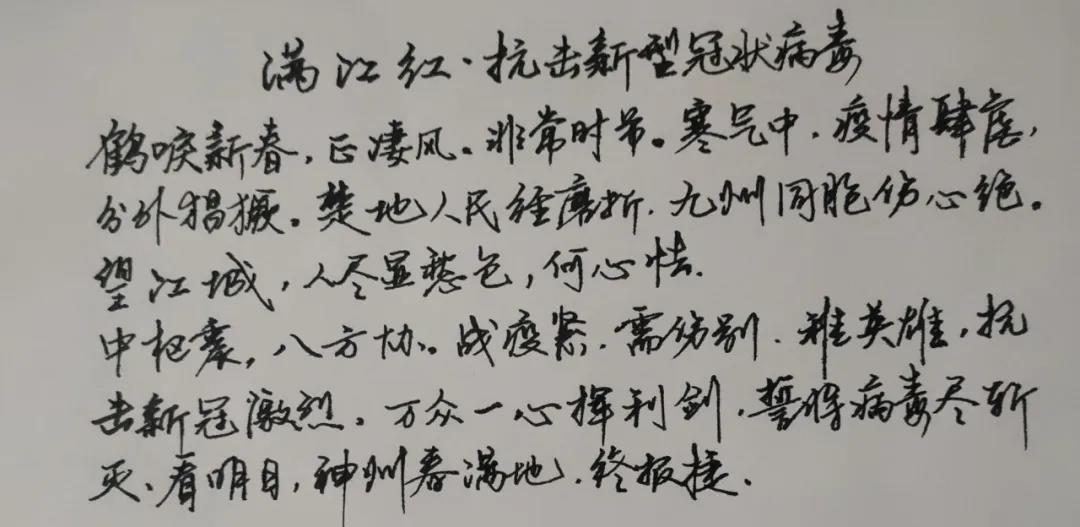 满江红·抗击新型冠状病毒
鹤唳新春,正凄风。非常时节。寒气中,疫情肆虐,
分外猖獗。楚地人民经磨折,九州同胞伤心绝。
望江城,人尽显愁色,何心怯.
中枢襄,八方协。战疫紧,需伤别.雅英雄,抗
击新冠激烈。万众一心挥利剑,誓将病毒尽斩
灭、看明日,神州春满地,终报捷.